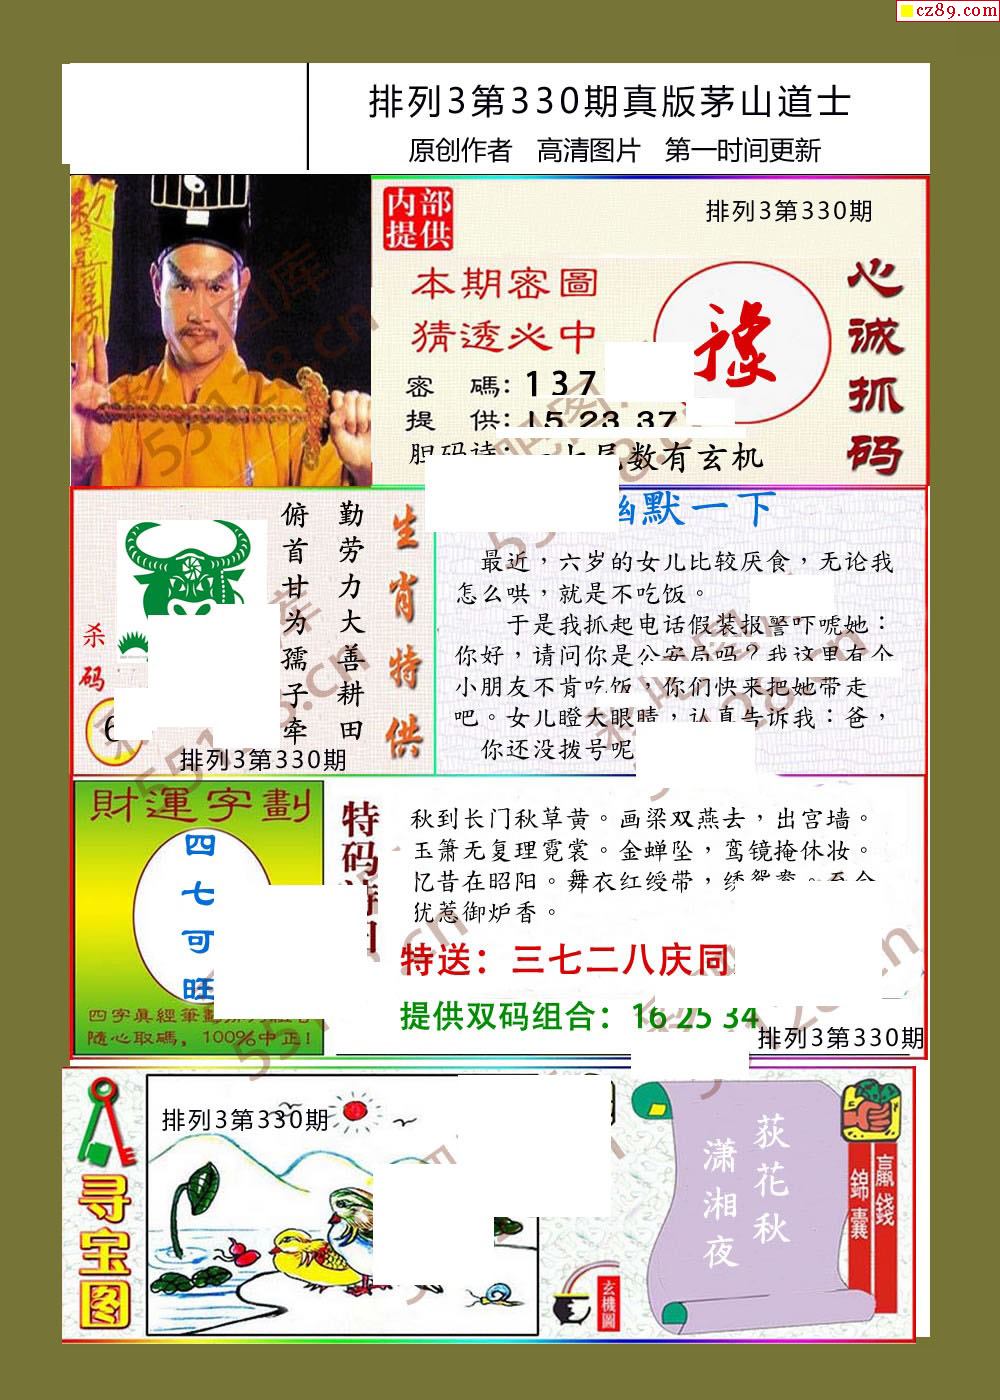 cz89.com
排列3第330期真版茅山道士
原创作者 高清图片 第一时间更新
内部
提供
排列3第330期
本期密圖
猜透必中
密 碼：137
提 供：15 23 37
尾数有玄机
心诚抓码
生肖特供
勤劳力大善耕田
俯首甘为孺子牵
杀码
6
排列3第330期
幽默一下
最近，六岁的女儿比较厌食，无论我
怎么哄，就是不吃饭。
于是我抓起电话假装报警吓唬她：
你好，请问你是公安局吗？我这里有个
小朋友不肯吃饭，你们快来把她带走
吧。女儿瞪大眼睛，认真告诉我：爸，
你还没拨号呢
財運字劃
四七可旺
四字眞經筆劃
隨心取碼，100%中正！
特码诗
秋到长门秋草黄。画梁双燕去，出宫墙。
玉箫无复理霓裳。金蝉坠，鸾镜掩休妆。
忆昔在昭阳。舞衣红绶带，绣鸳鸯。至今
犹惹御炉香。
特送：三七二八庆同
提供双码组合：16 25 34
排列3第330期
寻宝图
排列3第330期
玄機圖
荻花秋
潇湘夜
贏錢
錦囊